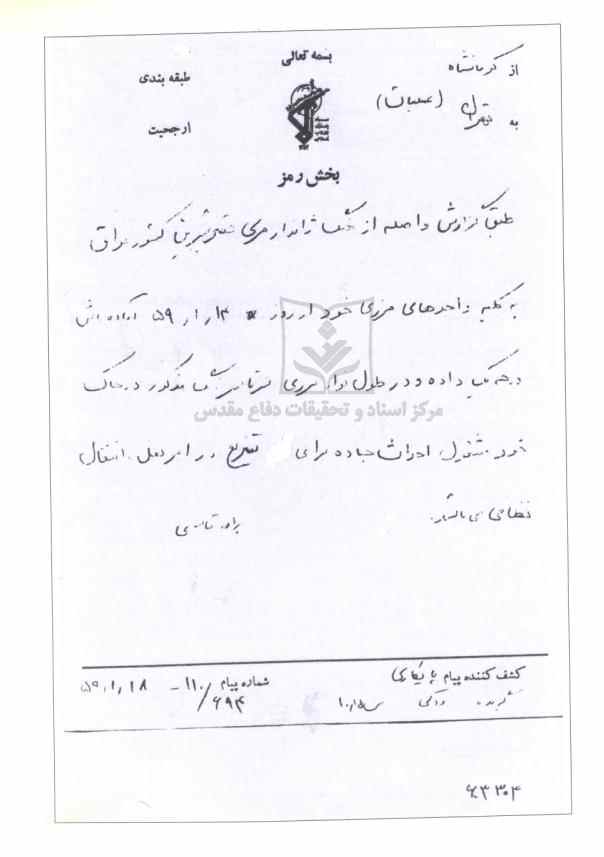 بسمه تعالی
از کرمانشاه
طبقه بندی
به تهران (عملیات)
ارجحیت
بخش رمز
طبق گزارش واصله از هنگ ژاندارمری قصرشیرین کشور عراق
به کلیه واحدهای مرزی خود از روز ۱۴ / ۱ / ۵۹ آماده باش
درجه یک داده و در طول نوار مرزی مذکور در خاک
خود مشغول احداث جاده برای تسریع در امر نقل و انتقال
نظامی می باشد.
مرکز اسناد و تحقیقات دفاع مقدس
کشف کننده پیام
شماره پیام ۱۱۰ - ۱۸ / ۱ / ۵۹
۶۹۴
گیرنده
۶۳۳۰۴